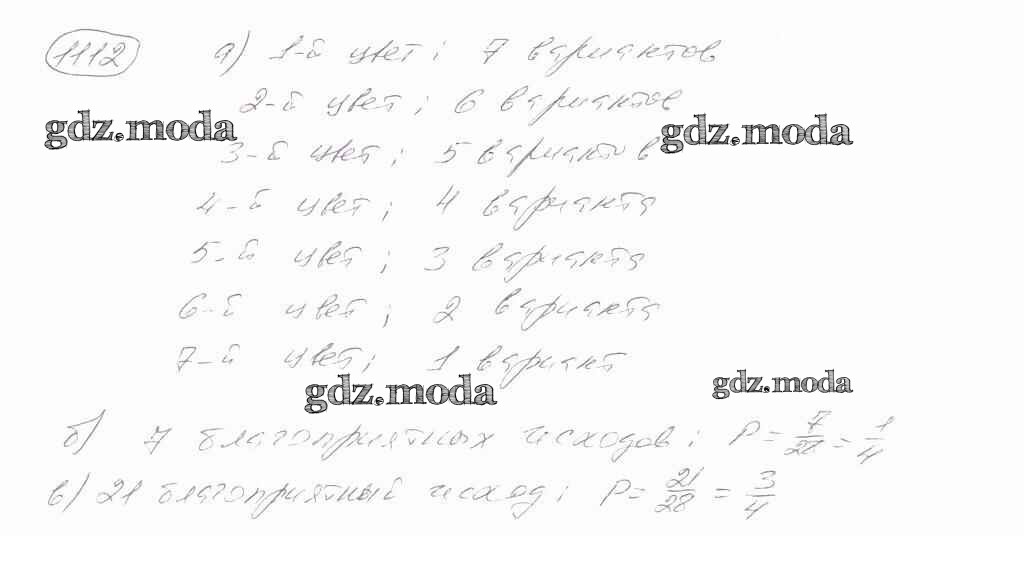 1112 а) 1-й цвет; 7 вариантов
2-й цвет; 6 вариантов
gdz.moda gdz.moda
3-й цвет; 5 вариантов
4-й цвет; 4 варианта
5-й цвет; 3 варианта
6-й цвет; 2 варианта
7-й цвет; 1 вариант
gdz.moda gdz.moda
б) 7 благоприятных исходов; P = 7/28 = 1/4
в) 21 благоприятный исход; P = 21/28 = 3/4